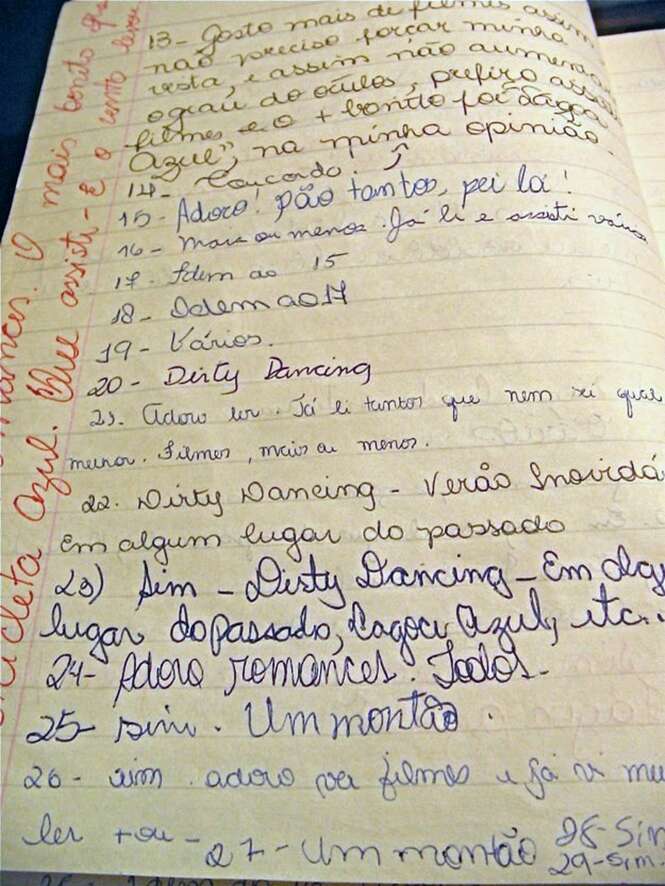 13- Gosto mais de filmes assim
não preciso forçar minha
vista, e assim não aumenta
o grau do óculos, prefiro assi
filmes e o + bonito foi "Lagoa
Azul", na minha opinião
14- Concordo.
15- Adoro! São tantos, sei lá!
16- Mais ou menos. Já li e assisti vários
17- Idem ao 15
18- Idem ao 17
19- Vários.
20- Dirty Dancing
21. Adoro ler. Já li tantos que nem sei qual
melhor. Filmes, mais ou menos.
22. Dirty Dancing - Verão Inovidá
Em algum lugar do passado
23) Sim - Dirty Dancing - Em alg
lugar do passado, Lagoa Azul, etc..
24- Adoro romances. Todos.
25- Sim. Um montão.
26- sim. adoro ver filmes e já vi mu
ler + ou -
27- Um montão
28- Sim
29- Sim.
mances. O mais bonito q
icleta Azul. Que assisti - E o vento levou